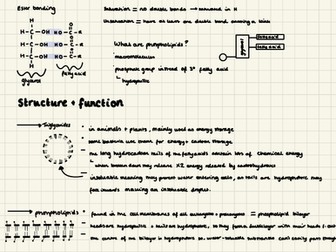 Ester bonding
Saturation = no double bonds → saturated in H
Unsaturation = have at least one double bond creating a
H - C - OH HO - C - R
H - C - OH HO - C - R
H - C - OH HO - C - R
H
glycerol
fatty acid
What are phospholipids?
- macromolecules
- phosphate group instead of 3rd fatty acid
↳ hydrophilic
glycerol
fatty acid
fatty acid
Structure + function
→ Triglycerides
- in animals + plants, mainly used as energy storage
- some bacteria use them for energy + carbon storage
- the long hydrocarbon tails of the fatty acids contain lots of chemical energy
- when broken down they release x2 energy stored by carbohydrates
- insoluble meaning they prevent water entering cells, as tails are hydrophobic they
face inwards making an insoluble droplet.
→ phospholipids
- found in the cell membranes of all eukaryotes + prokaryotes = phospholipid bilayer
- heads are hydrophilic + tails are hydrophobic, so they form a double layer with their heads
- the centre of the bilayer is hydrophobic so water-soluble substances can't easily pass